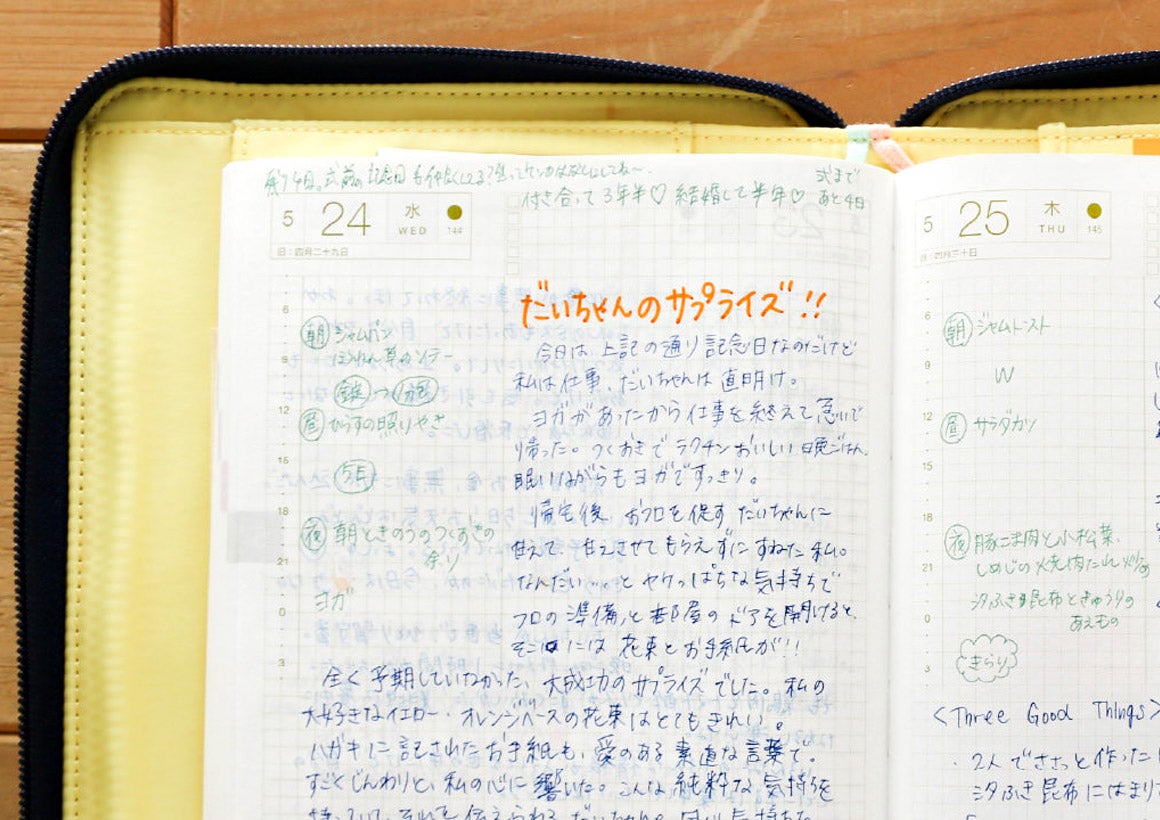 残り4日。式前の記念日も仲良くしてる?
式まで
付き合って3年半♡ 結婚して半年♡ あと4日
5 24 水 WED 144
旧:四月二十九日
だいちゃんのサプライズ!!
6
朝 ジャムパン
ほうれん草のソテー
9
今日は上記の通り記念日なのだけど
私は仕事、だいちゃんは直明け。
12
昼 ひらすの照りやき
ヨガがあったから仕事を終えて急いで
帰った。つくおきでラクチンおいしい晩ごはん。
15
眠いながらもヨガですっきり。
18
夜 朝ときのうのつくおきの
余り
21
ヨガ
0
3
帰宅後、おフロを促すだいちゃんに
甘えて、甘えさせてもらえずにすねた私。
なんだい…とヤケっぱちな気持ちで
フロの準備、と部屋のドアを開けると、
そこには花束とお手紙が!!
全く予期していなかった、大成功のサプライズでした。私の
大好きなイエロー・オレンジベースの花束はとてもきれい。
ハガキに記されたお手紙も、愛のある素直な言葉で。
すごくじんわりと、私の心に響いた。こんな純粋な気持ちを
持っていて、それを伝えられるだいちゃん。
5 25 木 THU 145
旧:四月三十日
6
朝 ジャムトースト
9
W
12
昼 サラダカツ
15
18
夜 豚こま肉と小松菜、
しめじの焼肉たれ
21
汐ふき昆布ときゅうりの
あえもの
0
きらり
3
<Three Good Things>
・2人でささっと作った
汐ふき昆布にはまり